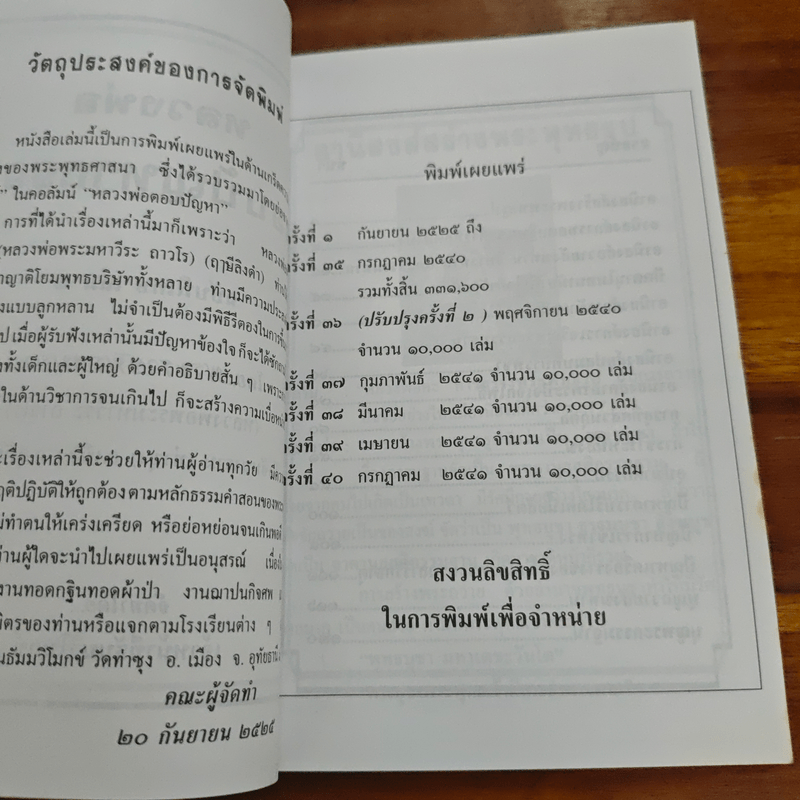 วัตถุประสงค์ของการจัดพิมพ์
หนังสือเล่มนี้เป็นการพิมพ์เผยแพร่ในด้านเกร็ด
ของพระพุทธศาสนา ซึ่งได้รวบรวมมาโดย
” ในคอลัมน์ “หลวงพ่อตอบปัญหา”
การที่ได้นำเรื่องเหล่านี้มาก็เพราะว่า
(หลวงพ่อพระมหาวีระ ถาวโร) (ฤๅษีลิงดำ)
ญาติโยมพุทธบริษัททั้งหลาย ท่านมีความ
แบบลูกหลาน ไม่จำเป็นต้องมีพิธีรีตองในการ
ป เมื่อผู้รับฟังเหล่านั้นมีปัญหาข้องใจ ก็จะได้
ทั้งเด็กและผู้ใหญ่ ด้วยคำอธิบายสั้น ๆ
ในด้านวิชาการจนเกินไป ก็จะสร้างความ
เรื่องเหล่านี้จะช่วยให้ท่านผู้อ่านทุกวัย
ฤติปฏิบัติให้ถูกต้องตามหลักธรรมคำสอนของ
ทำตนให้เคร่งเครียด หรือย่อหย่อนจนเกิน
านผู้ใดจะนำไปเผยแพร่เป็นอนุสรณ์
งานทอดกฐินทอดผ้าป่า งานฌาปนกิจศพ
มิตรของท่านหรือแจกตามโรงเรียนต่าง ๆ
นธัมมวิโมกข์ วัดท่าซุง อ. เมือง จ. อุทัยธานี
คณะผู้จัดทำ
๒๐ กันยายน ๒๕๒๕
พิมพ์เผยแพร่
รั้งที่ ๑ กันยายน ๒๕๒๕ ถึง
รั้งที่ ๓๕ กรกฎาคม ๒๕๔๐
รวมทั้งสิ้น ๓๓๑,๖๐๐
รั้งที่ ๓๖ (ปรับปรุงครั้งที่ ๒ ) พฤศจิกายน ๒๕๔๐
จำนวน ๑๐,๐๐๐ เล่ม
รั้งที่ ๓๗ กุมภาพันธ์ ๒๕๔๑ จำนวน ๑๐,๐๐๐ เล่ม
รั้งที่ ๓๘ มีนาคม ๒๕๔๑ จำนวน ๑๐,๐๐๐ เล่ม
รั้งที่ ๓๙ เมษายน ๒๕๔๑ จำนวน ๑๐,๐๐๐ เล่ม
รั้งที่ ๔๐ กรกฎาคม ๒๕๔๑ จำนวน ๑๐,๐๐๐ เล่ม
สงวนลิขสิทธิ์
ในการพิมพ์เพื่อจำหน่าย